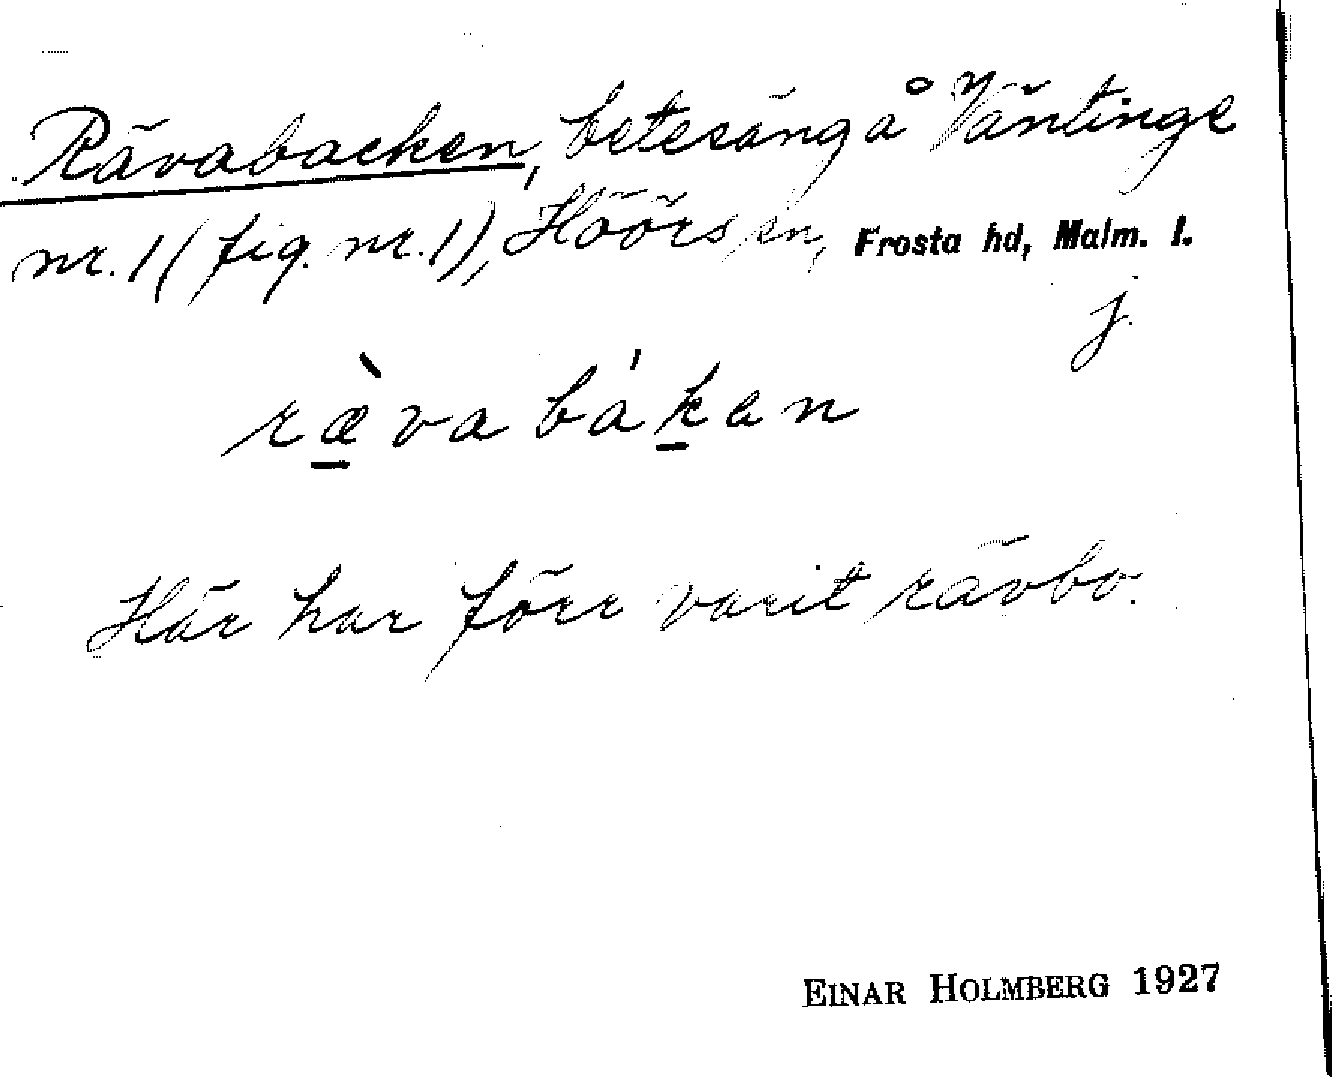 Rävabacken, betesäng å Väntinge
nr. 1 (fig. nr. 1), Höörs sn, Frosta hd, Malm. l.
j.
ræ̱̀va bá̍ḵan
Här har förr varit rävbo.
EINAR HOLMBERG 1927